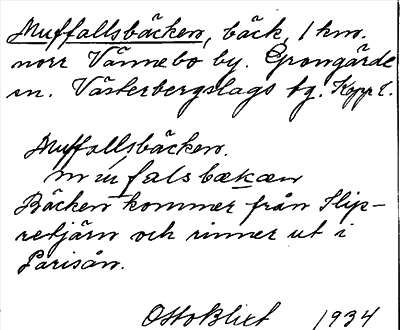 Muffallsbäcken, bäck, 1 km.
norr Vännebo by. Grangärde
sn. Västerbergslags tg. Kopp l.
Muffallsbäcken.
falsbækæn
Bäcken kommer från Slip-
retjärn och rinner ut i
Parisån.
Otto Blixt 1934